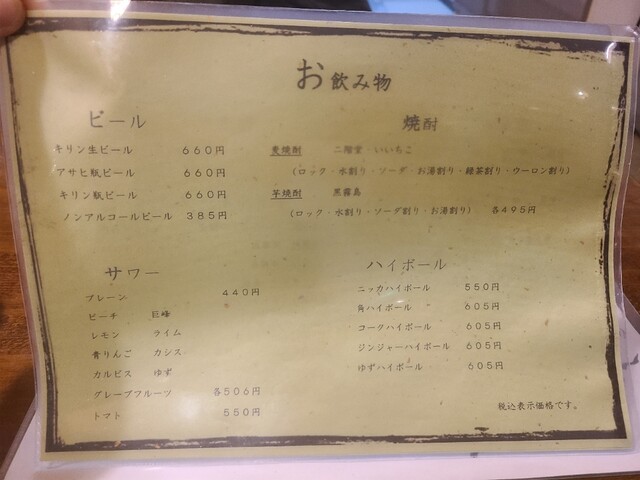 お飲み物
ビール
キリン生ビール 660円
アサヒ瓶ビール 660円
キリン瓶ビール 660円
ノンアルコールビール 385円
焼酎
麦焼酎 二階堂・いいちこ
（ロック・水割り・ソーダ・お湯割り・緑茶割り・ウーロン割り）
芋焼酎 黒霧島
（ロック・水割り・ソーダ割り・お湯割り） 各495円
サワー
プレーン 440円
ピーチ 巨峰
レモン ライム
青りんご カシス
カルピス ゆず
グレープフルーツ 各506円
トマト 550円
ハイボール
ニッカハイボール 550円
角ハイボール 605円
コークハイボール 605円
ジンジャーハイボール 605円
ゆずハイボール 605円
税込表示価格です。